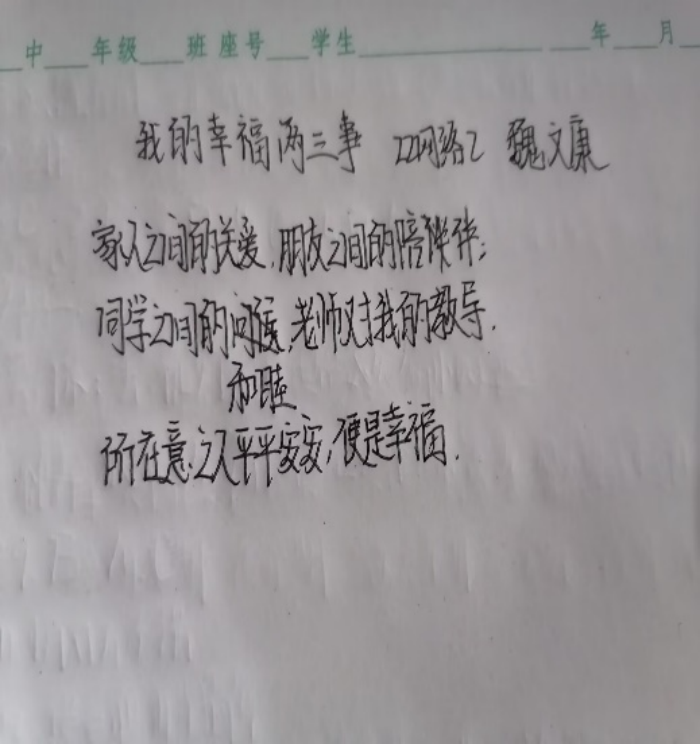 中 年级 班 座号 学生 年 月
我的幸福两三事 22网络2 魏文康
家人之间的关爱,朋友之间的陪伴;
同学之间的问候,老师对我的教导.
和睦
所在意之人平平安安,便是幸福.